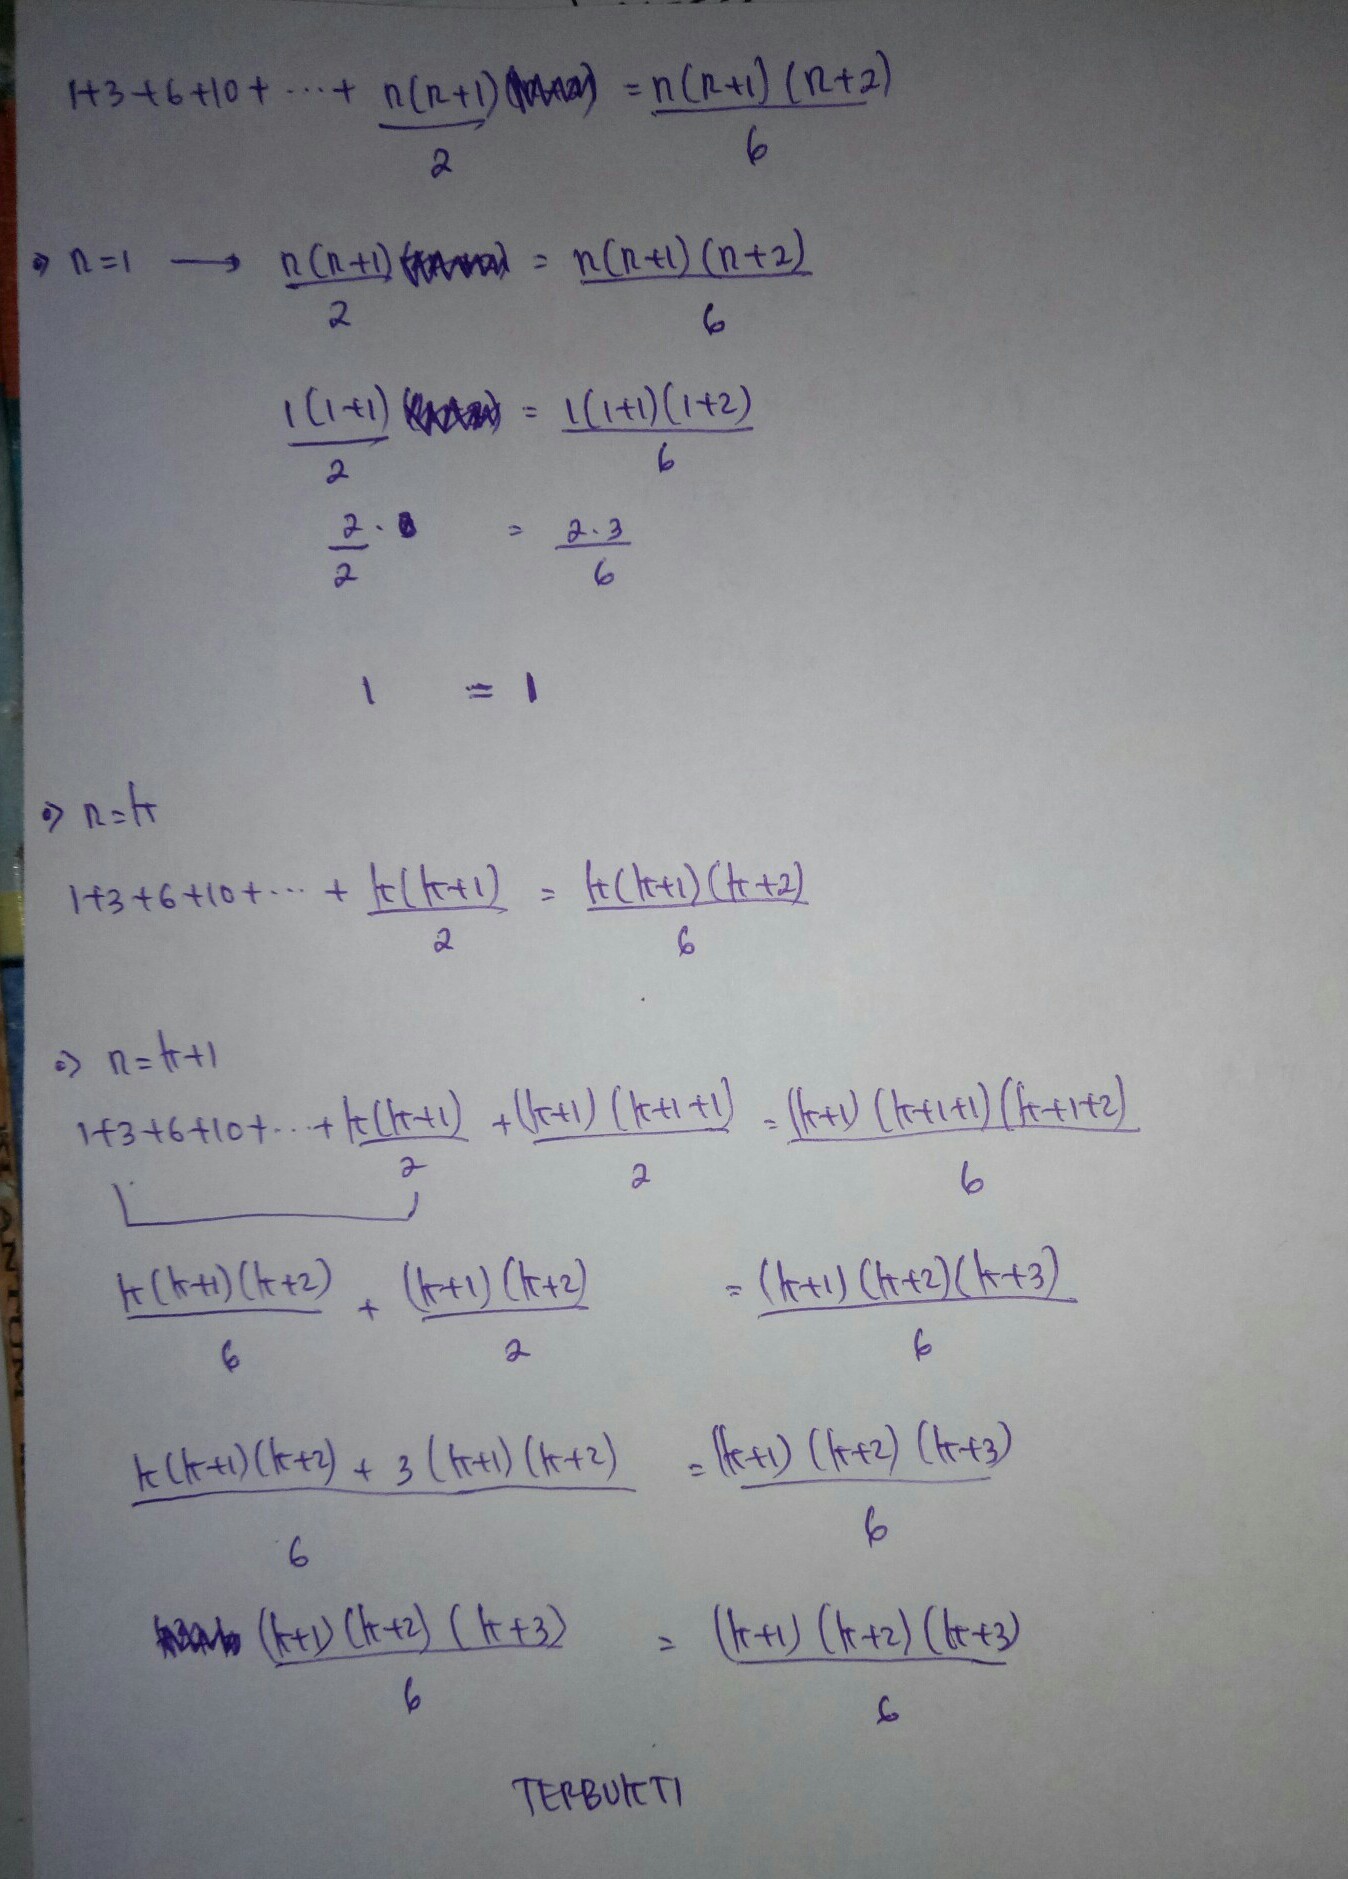 1+3+6+10+ ... + n(n+1)/2 = n(n+1)(n+2)/6
n=1 → n(n+1)/2 = n(n+1)(n+2)/6
1(1+1)/2 = 1(1+1)(1+2)/6
2/2 . = 2.3/6
1 = 1
n=k
1+3+6+10+ ... + k(k+1)/2 = k(k+1)(k+2)/6
n=k+1
1+3+6+10+ ... + k(k+1)/2 + (k+1)(k+1+1)/2 = (k+1)(k+1+1)(k+1+2)/6
k(k+1)(k+2)/6 + (k+1)(k+2)/2 = (k+1)(k+2)(k+3)/6
k(k+1)(k+2) + 3(k+1)(k+2)/6 = (k+1)(k+2)(k+3)/6
(k+1)(k+2)(k+3)/6 = (k+1)(k+2)(k+3)/6
TERBUKTI